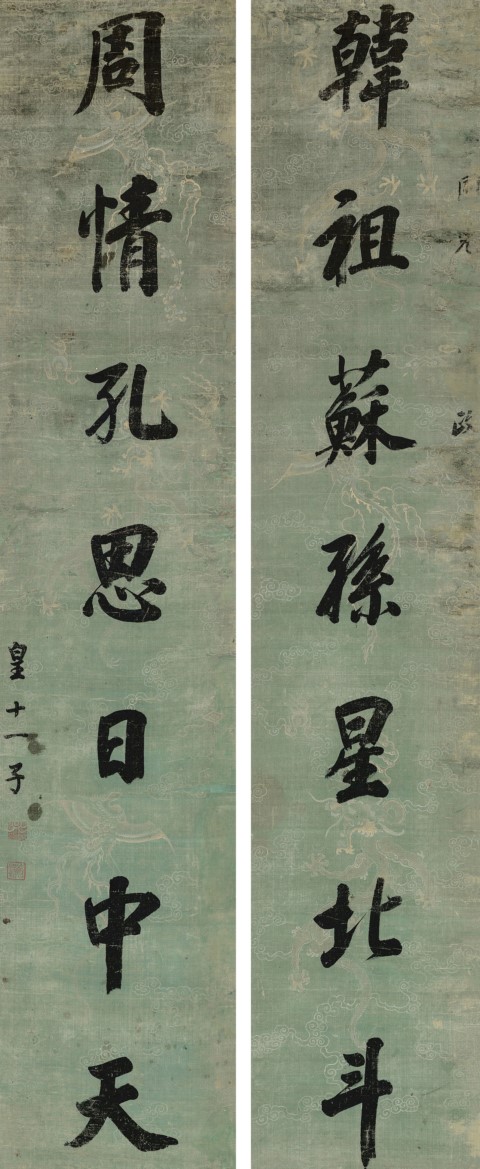 政
韓祖蘇孫星北斗
周情孔思日中天
皇十一子